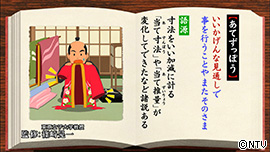 【あてずっぽう】
いいかげんな見通しで
事を行うことや またそのさま
語源
寸法をいい加減に計る
「当て寸法」や「当て推量」が
変化してできたなど諸説ある
監修：篠崎晃一
©NTV